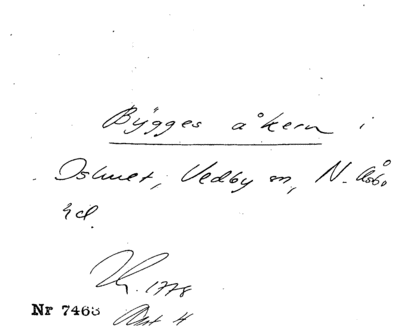 Byggesåkern i
Oshult, Vedby sn, N. Åsbo
hd.
1778
Nr 7463 Akt 4